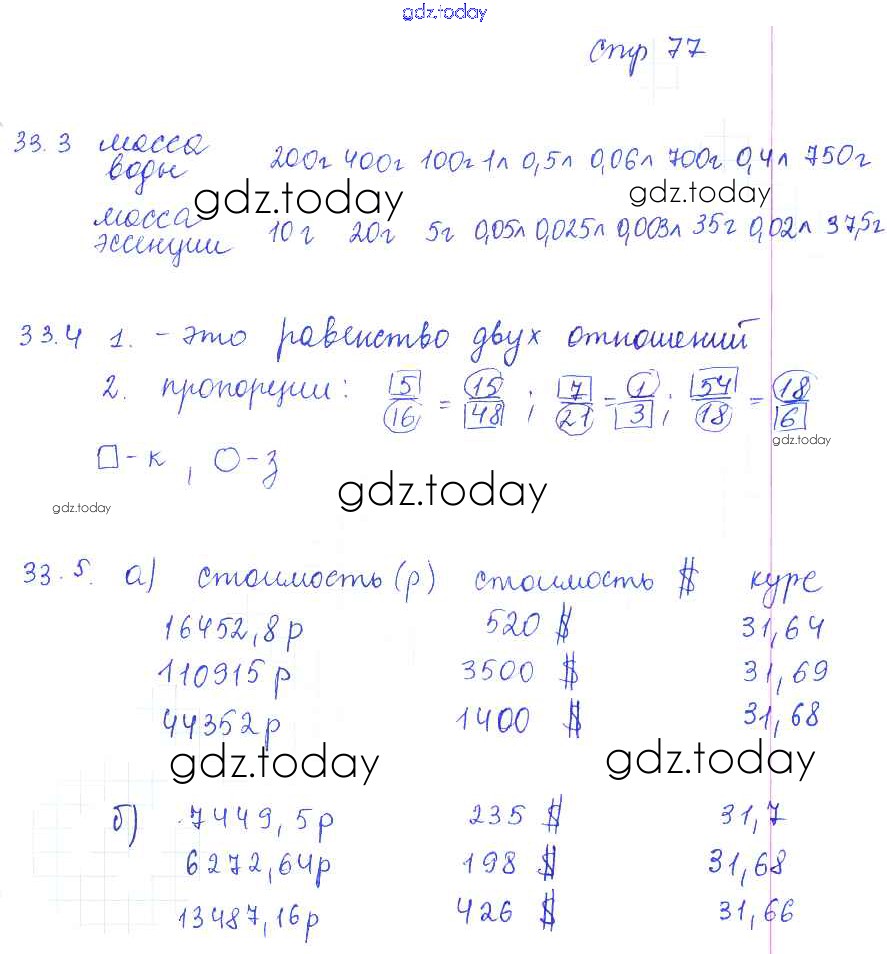 gdz.today
стр 77
33.3 масса воды 200г 400г 100г 1л 0,5л 0,06л 700г 0,4л 750г
gdz.today gdz.today
масса эссенции 10г 20г 5г 0,05л 0,025л 0,003л 35г 0,02л 37,5г
33.4 1. - это равенство двух отношений
2. пропорции: 5/16 = 15/48 ; 7/21 = 1/3 ; 54/18 = 18/6
gdz.today
□-к , ○-з
gdz.today
gdz.today
33.5. а) стоимость (р) стоимость $ курс
16452,8р 520 $ 31,64
110915р 3500 $ 31,69
44352р 1400 $ 31,68
gdz.today gdz.today
б) 7449,5р 235 $ 31,7
6272,64р 198 $ 31,68
13487,16р 426 $ 31,66